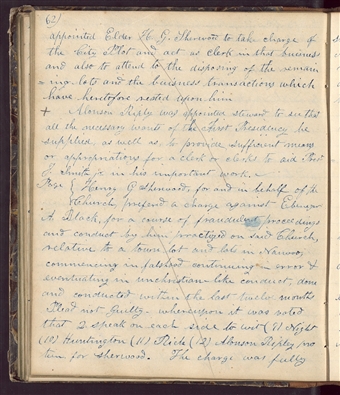 (2)
appointed Elder H. G. Sherwood to take charge of
the City Plot and act as clerk in that buisness
and also to attend to the disposing of the remain
=ing lots and the buisness transactions which
have heretofore rested upon him
+ Alonson Ripley was appointed steward to see that
all the necessary wants of the First Presidency be
supplied, as well as to provide sufficient means
or appropriations for a clerk or clerks to aid Pres
J. Smith jr in his important work.
Henry G Sherwood, for and in behalf of the
Church, prefered a charge against Ebenezer
Black, for a course of fraudulent proceedings
and conduct by him practized on said Church,
relative to a town lot and lots in Nauvoo,
commencing in falshood continuing in error &
eventuating in unchristian like conduct, done
and conducted within the last twelve months
Plead not guilty - whereupon it was voted
that 2 speak on each side to wit (9) Night
(10) Huntington (11) Rich (12) Alonson Ripley, pro
tem for Sherwood. The charge was fully